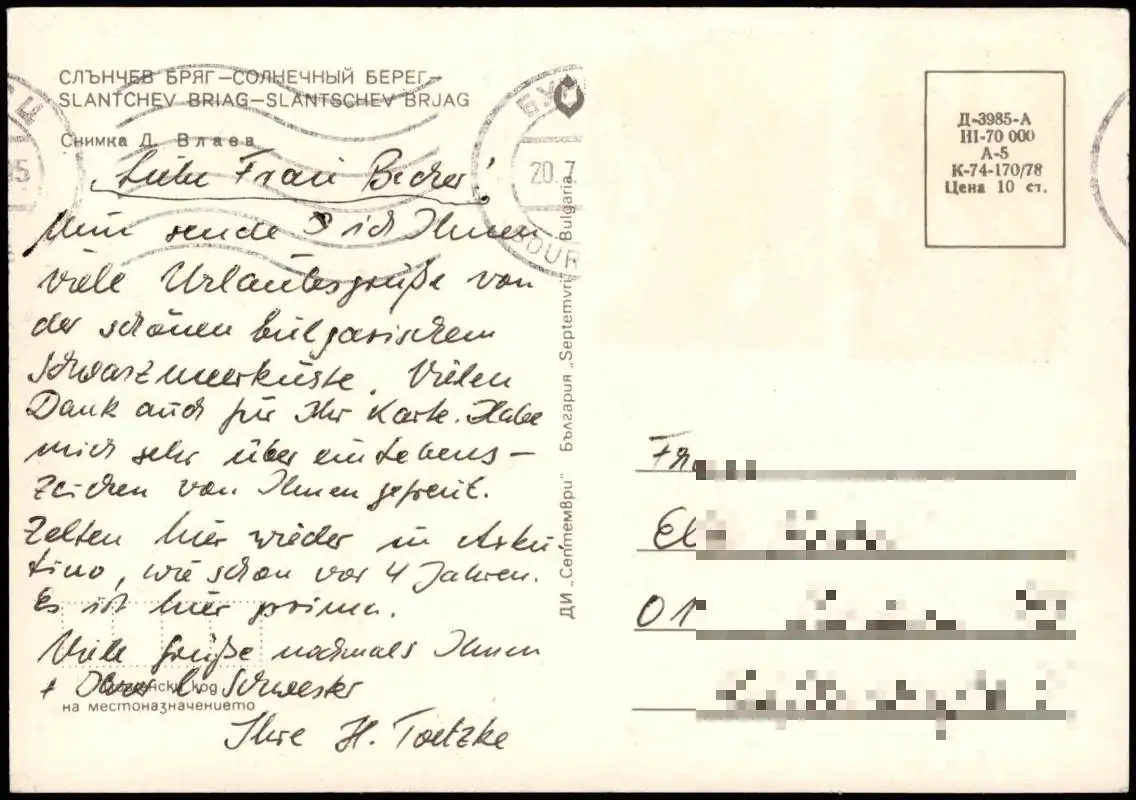 СЛЪНЧЕВ БРЯГ—СОЛНЕЧНЫЙ БЕРЕГ—
SLANTCHEV BRIAG—SLANTSCHEV BRJAG
Снимка Д. Влаев
Liebe Frau Becker!
Nun sende ich Ihnen
viele Urlaubsgrüße von
der schönen bulgarischen
Schwarzmeerküste. Vielen
Dank auch für Ihr Karte. Habe
mich sehr über ein Lebens-
zeichen von Ihnen gefreut.
Zelten hier wieder in Arku-
tino, wie schon vor 4 Jahren.
Es ist hier prima.
Viele Grüße nochmals Ihnen
+ Ihrer Schwester
код
на местоназначението
Ihre H. Toetzke
ДИ „Септември" България „Septemvri Bulgaria
БУ
20.7
BOUR
Д-3985-А
III-70 000
А-5
К-74-170/78
Цена 10 ст.
Fr
El
01